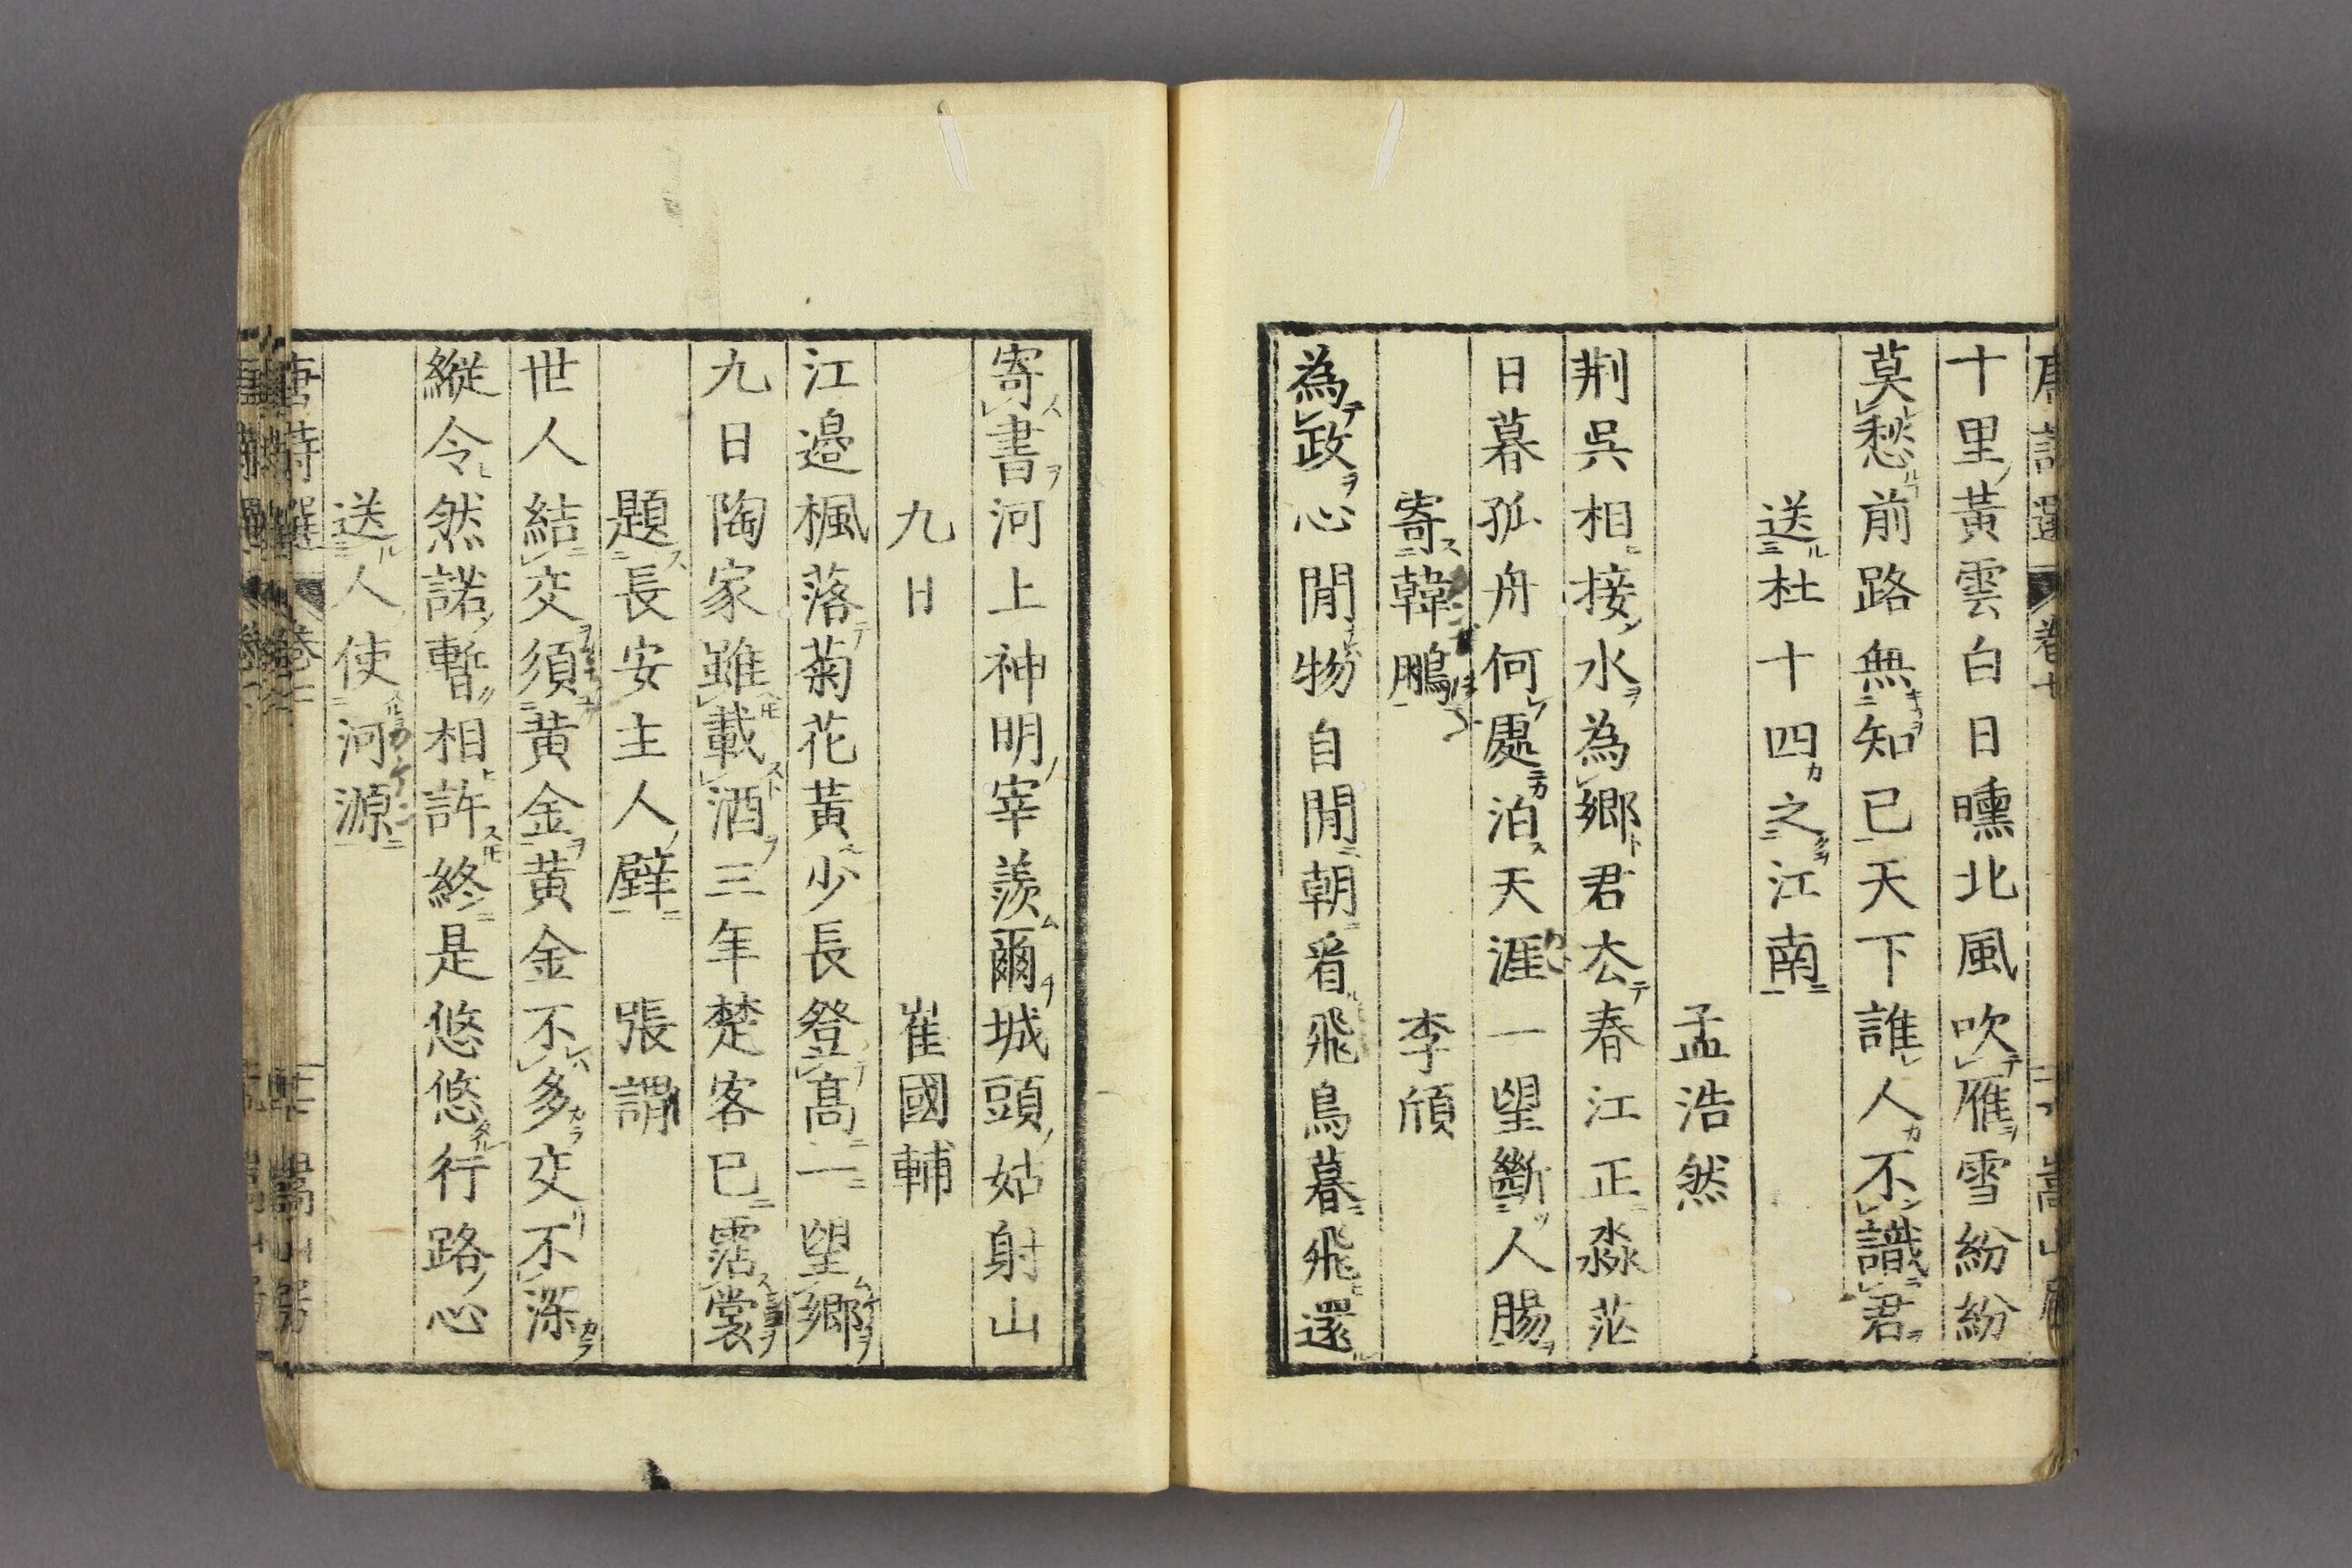 唐詩選 卷七 嵩山房
十里黃雲白日曛北風吹雁雪紛紛
莫愁前路無知己天下誰人不識君
送杜十四之江南
孟浩然
荆吳相接水為鄉君去春江正淼茫
日暮孤舟何處泊天涯一望斷人腸
寄韓鵬 李頎
為政心閒物自閒朝看飛鳥暮飛還
寄書河上神明宰羨爾城頭姑射山
九日 崔國輔
江邊楓落菊花黃少長登高一望鄉
九日陶家雖載酒三年楚客已霑裳
題長安主人壁 張謂
世人結交須黄金黄金不多交不深
縱令然諾暫相許終是悠悠行路心
送人使河源
唐詩選